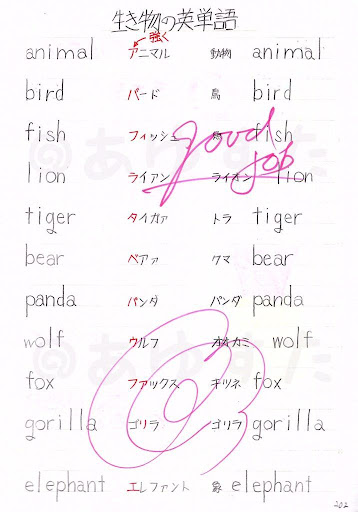 生き物の英単語
強く
animal アニマル 動物 animal
bird バード 鳥 bird
fish フィッシュ fish
good
job
lion ライアン ライオン lion
tiger タイガァ トラ tiger
bear ベアァ クマ bear
panda パンダ パンダ panda
wolf ウルフ オオカミ wolf
fox ファックス キツネ fox
gorilla ゴリラ ゴリラ gorilla
elephant エレファント 象 elephant
202